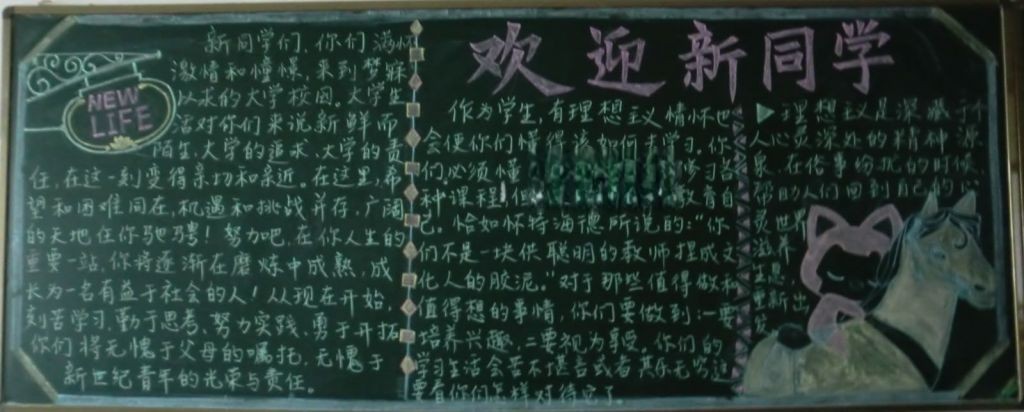 欢迎新同学
NEW
LIFE
新同学们、你们满怀
激情和憧憬,来到梦寐
以求的大学校园。大学生
活对你们来说新鲜而
陌生,大学的追求、大学的责
任,在这一刻变得亲切和亲近。在这里,希
望和困难同在,机遇和挑战并存,广阔
的天地任你驰骋!努力吧,在你人生的
重要一站,你将逐渐在磨炼中成熟,成
长为一名有益于社会的人!从现在开始,
刻苦学习,勤于思考、努力实践、勇于开拓
你们将无愧于父母的嘱托,无愧于
新世纪青年的光荣与责任。
作为学生,有理想主义情怀也
会使你们懂得该如何去学习,你
们必须懂 修习各
种课程,但 教育自
己。恰如怀特海德所说的:“你
们不是一块供聪明的教师捏成文
化人的胶泥。”对于那些值得做和
值得想的事情,你们要做到:一要
培养兴趣,二要视为享受。你们的
学习生活会苦不堪言或者其乐无穷这
要看你们怎样对待它了。
理想主义是深藏于
人心灵深处的精神源
泉,在俗事纷扰的时候,
帮助人们回到自己的心
灵世界
滋养
生息,
重新出
发